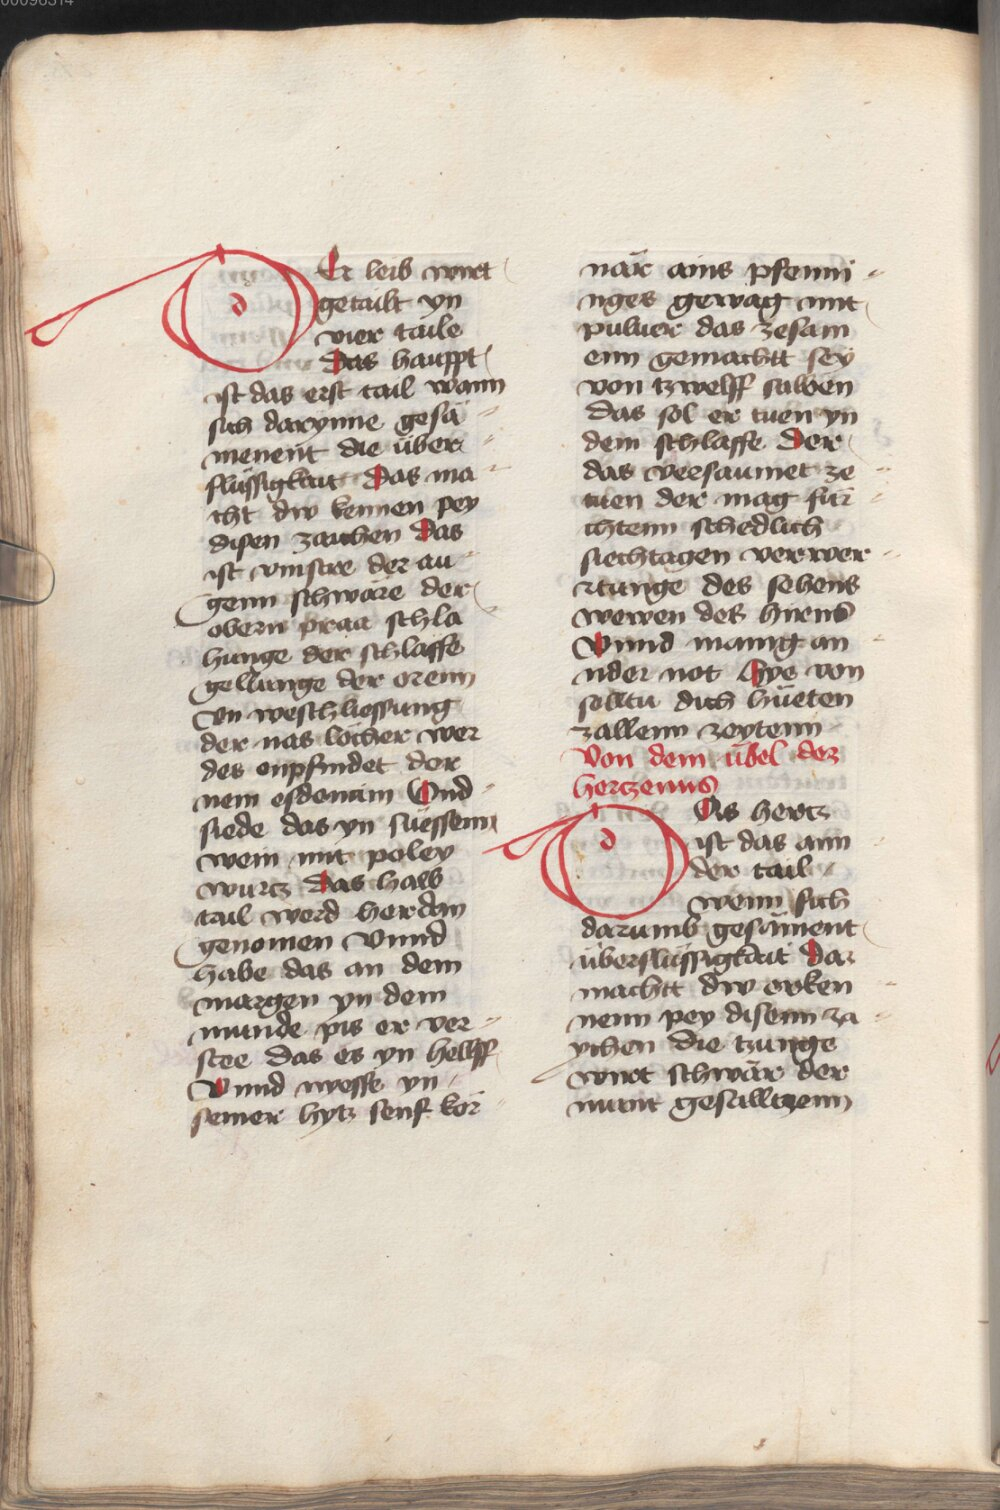 Der leib wirt
getailt yn
vier taile
Das hauppt
ist das erst tail wann
sich darynne gesä
menent die über
flüssigkait Das ma
cht dw kennen pey
disen zaichen Das
ist vinstre der au
genn schwäre der
obern praa schla
hunge der schlaffe
gellunge der orenn
vn weschliessung
der nas löcher wer
des enpfindet der
nem esdonum Vnd
siede das yn süessenn
wein mit poley
wurtz Das halb
tail werd herdan
genomen Vnnd
habe das an dem
margen yn dem
munde pis er ver
stee das es yn hellff
Vnnd messe yn
seiner hytz senf kör
när ains pfenni
nges gewag mit
puluer das zesam
enn gemachtt sey
von tzwelff salben
das sol er tuen yn
dem schlaffe Der
das versaumet ze
tuen der mag für
chtenn schedlich
siechtagen verwer
rtunge des sehens
wewen des hirns
Vnnd manig an
nder not Hye von
solltu dich hüeten
zallenn zeytenn
Von dem übel dez
hertzenns
Das hertz
ist das ann
der tail
wenn sich
darumb gesament
überflüssigkait Daz
machtt dw erken
nenn pey disenn za
ychen die tzunge
wirt schwär der
munt gesalltzenn
00096314